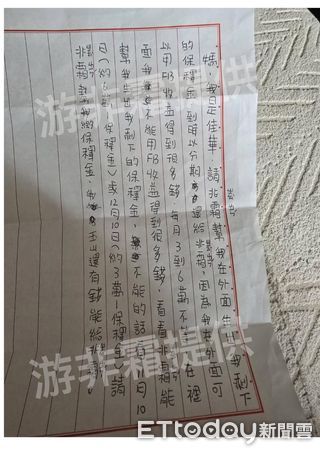 媽，我是佳華 請非霜幫我在外面生出我剩下
的保釋金，到時以分期還給非霜，因為我在外面可
以用FB收益得到很多錢，每月3到6萬不等，在裡
面我不能用FB收益得到很多錢，看看非霜能
幫我生出我剩下的保釋金，不能的話 月10
日(約6萬 保釋金)或12月10日(約3萬 保釋金)請
非霜幫我繳保釋金，我玉山還有錢能給非霜。
游菲霜提供
游菲霜提供
ETtoday新聞雲